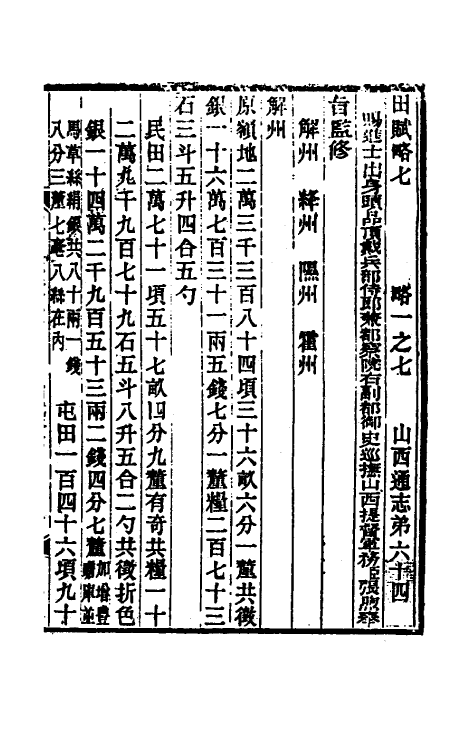 田賦略七　略一之七　山西通志第六十四
賜進士出身頭品頂戴兵部侍郎兼都察院右副都御史巡撫山西提督軍務臣張煦奉
旨監修
解州　絳州　隰州　霍州
解州
原額地二萬三千三百八十四項三十六畝六分一釐共徵
銀一十六萬七百三十一兩五錢七分一釐糧二百七十三
石三斗五升四合五勺
民田二萬七十一項五十七畝四分九釐有奇共糧一十
二萬九千九百七十九石五斗八升五合二勺共徵折色
銀一十四萬二千九百五十三兩二錢四分七釐加增豊
贍庫並
馬草絲絹銀共八十兩一錢
八分三釐七毫八絲在內　屯田一百四十六項九十